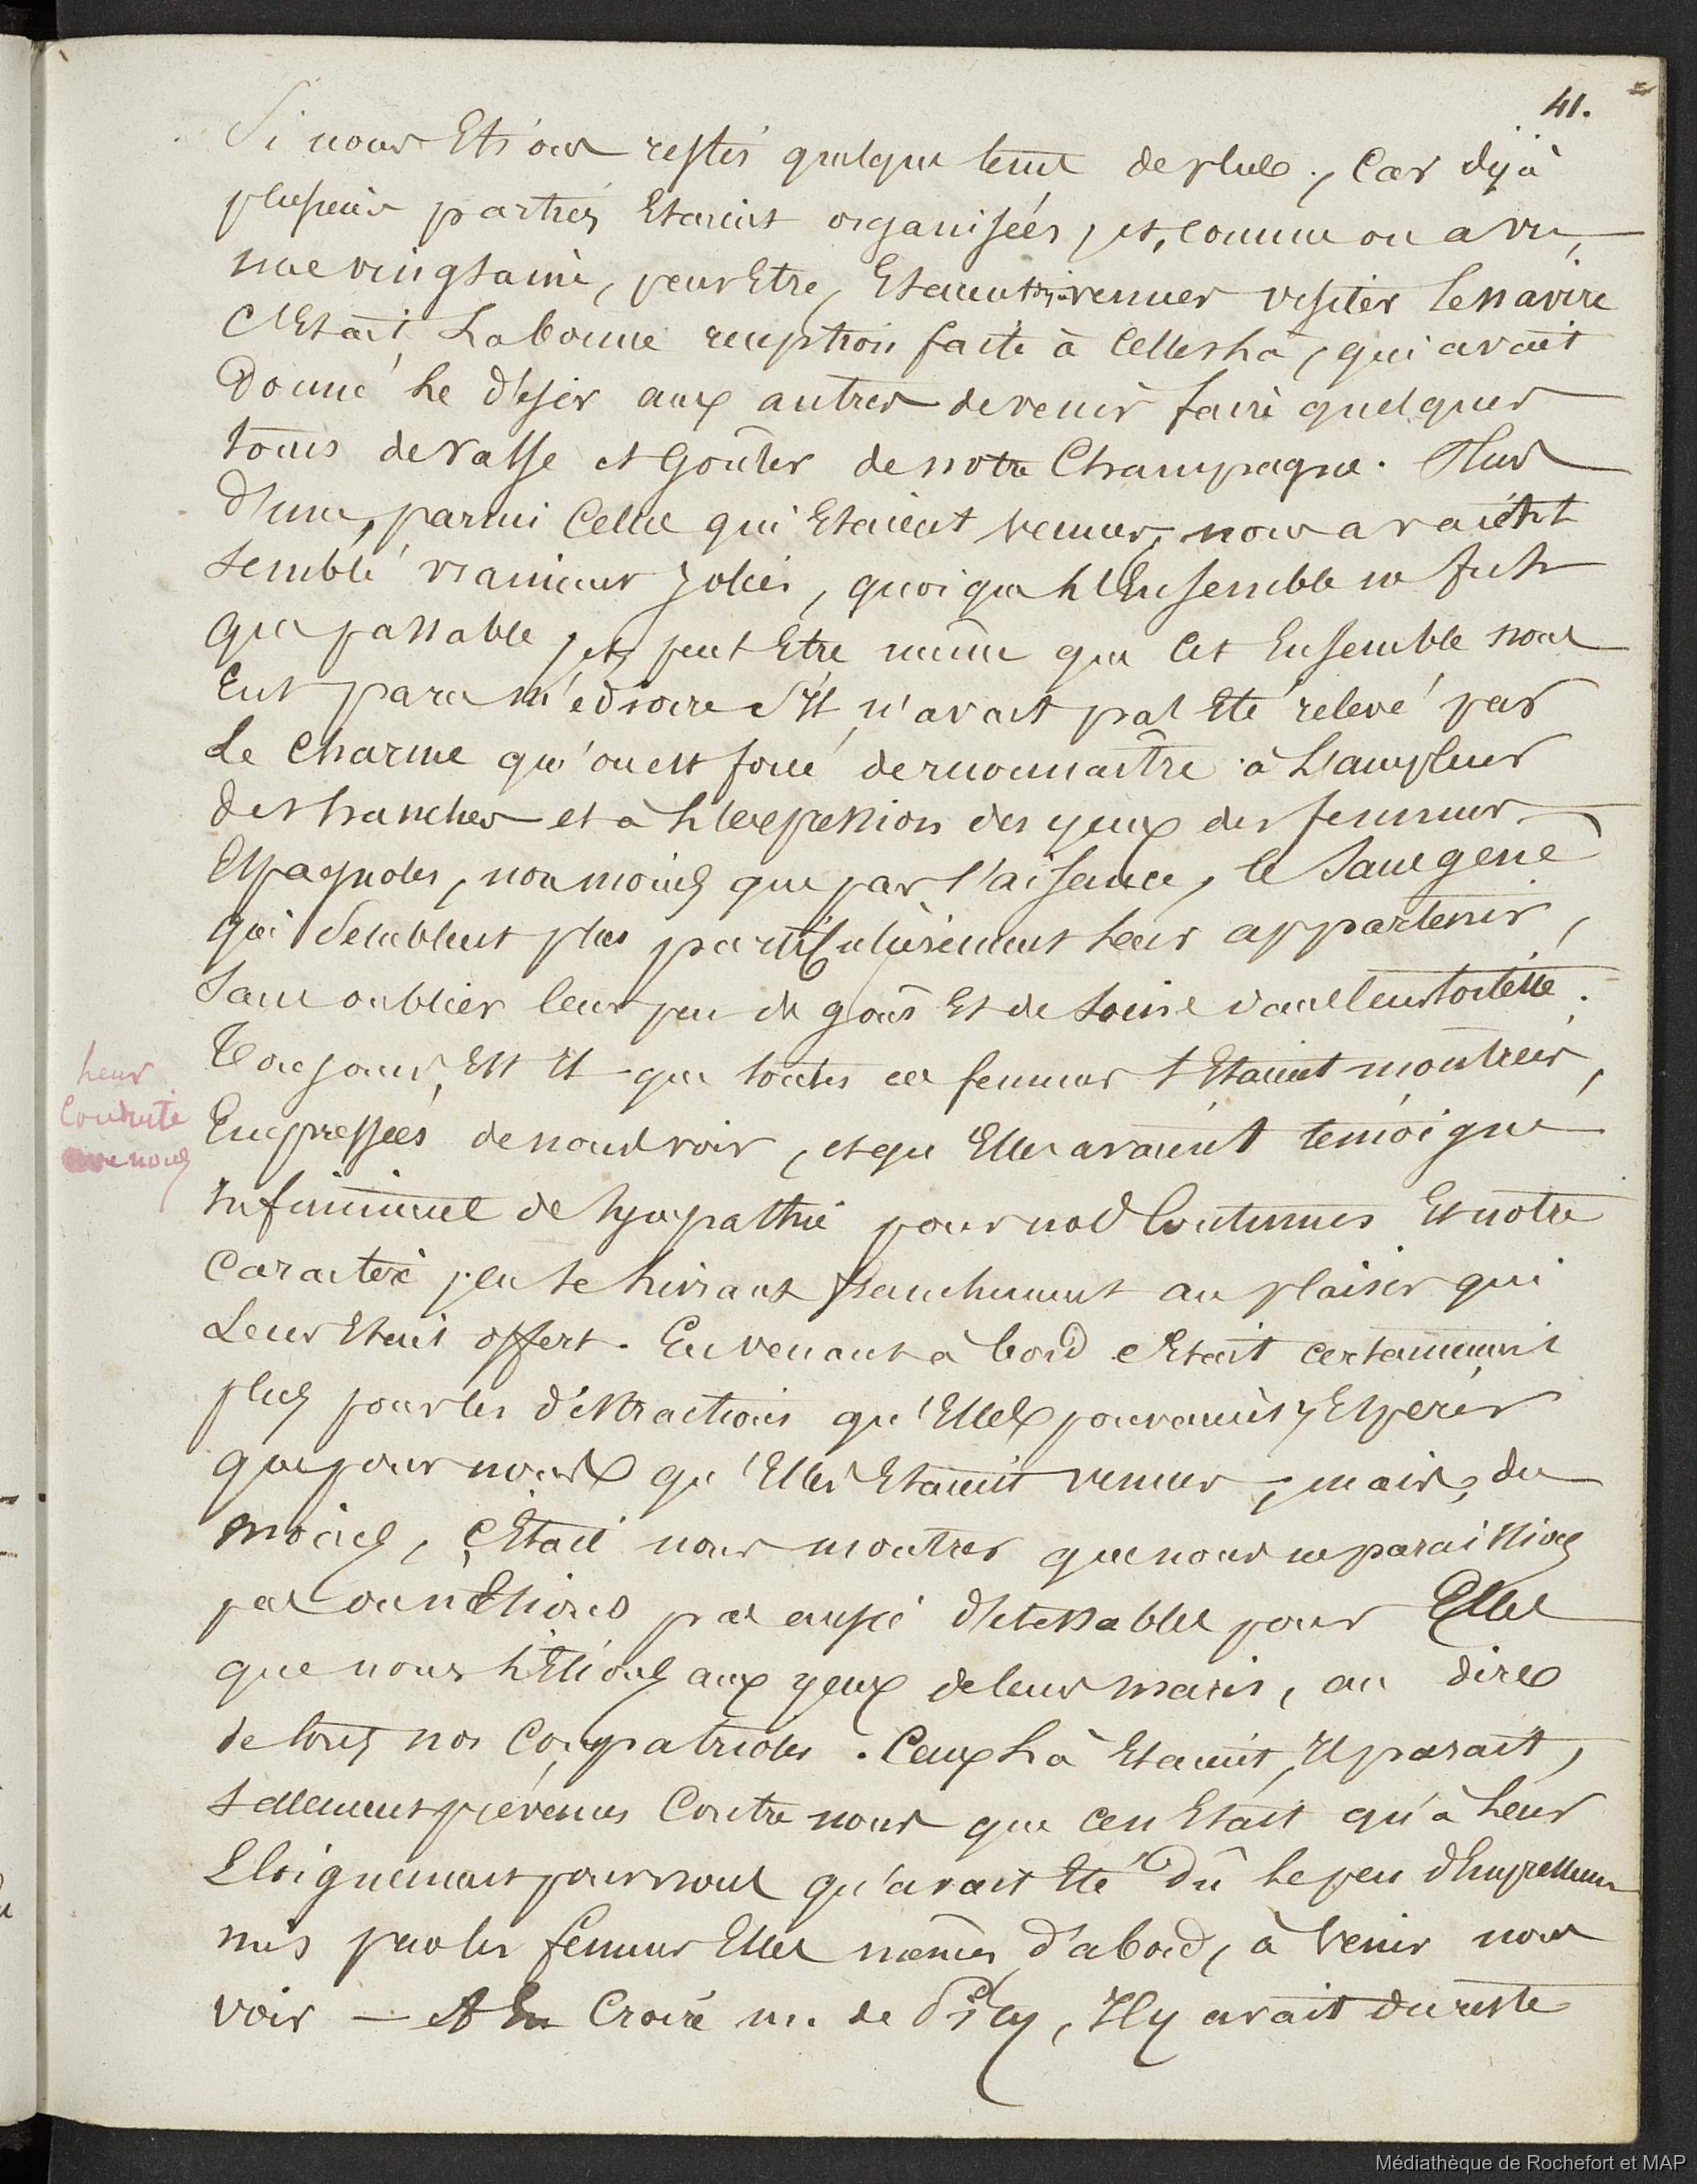 41.
Si nous Etions restés quelque tems de plus, Car déjà
plusieurs parties Etaient organisées, et, comme on a vu,
une vingtaine, peut Etre, Etaient venues visiter le navire
C'Etait La bonne reception faite à Celles là, qui avait
Donné le désir aux autres de venir faire quelques
tours de valse et Goûter de notre Champagne. Plus
d'une, parmi Celles qui Etaient venues, nous avaient
semblé vraiment jolies, quoique l'Ensemble ne fut
que passable, et peut Etre même que Cet Ensemble nous
Eut paru médiocre S'Il n'avait pas Eté relevé par
Le Charme qu'on est forcé de reconnaître à L'ampleur
des hanches et à L'expression des yeux des femmes
Espagnoles, non moins que par l'aisance, le Sans gene
qui Semblent plus particulièrement Leur appartenir,
Sans oublier leur peu de goût Et de Soins dans leur toilette.
Toujours Est Il que toutes ces femmes s'Etaient montrées,
Empressées de nous voir, et qu'Elles avaient temoigné
infiniment de Sympathie pour nos Coutumes Et notre
Caractère, en se Livrant franchement au plaisir qui
Leur Etait offert. En venant à bord c'Etait certainement
plus pour les distractions qu'Elles pouvaient y Esperer
que pour nous qu'Elles Etaient venues, mais, du
moins, c'Etait nous montrer que nous ne paraissions
pas ou n'Etions pas aussi détestables pour Elles
que nous L'Etions aux yeux de leurs maris, au dire
de tous nos Compatriotes. Ceux là Etaient, Il parait,
tellement prévenus Contre nous que ce n'Etait qu'à Leur
Eloignement pour nous qu'avait Eté dû le peu d'Empressement
mis par les femmes Elles mêmes d'abord, à Venir nous
voir — A En Croire m. de Il y avait du reste
Leur
Conduite
avec nous
Médiathèque de Rochefort et MAP